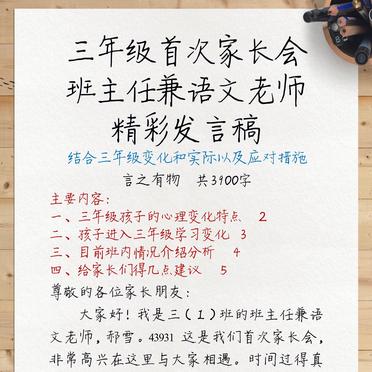 三年级首次家长会
班主任兼语文老师
精彩发言稿
结合三年级变化和实际以及应对措施
言之有物 共3900字
主要内容:
一、三年级孩子的心理变化特点 2
二、孩子进入三年级学习变化 3
三、目前班内情况介绍分析 4
四、给家长们得几点建议 5
尊敬的各位家长朋友:
大家好!我是三(1)班的班主任兼语
文老师,郝雪。43931 这是我们首次家长会,
非常高兴在这里与大家相遇。时间过得真